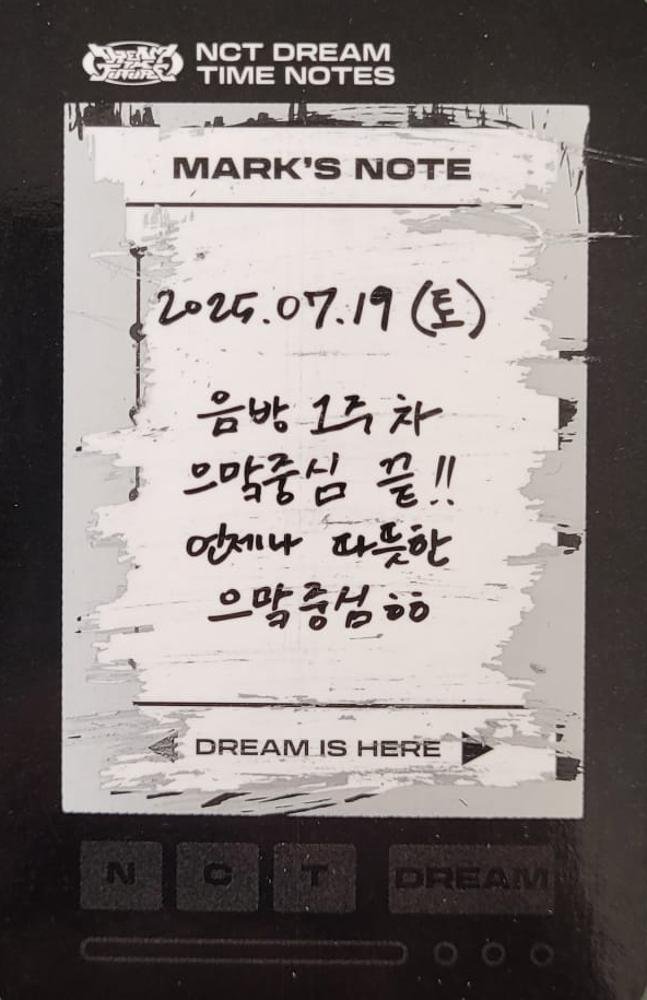 DREAM THE FUTURE
NCT DREAM
TIME NOTES
MARK'S NOTE
2025.07.19 (토)
음방 1주차
으막중심 끝!!
언제나 따듯한
으막중심 ㅎㅎ
DREAM IS HERE
N C T DREAM